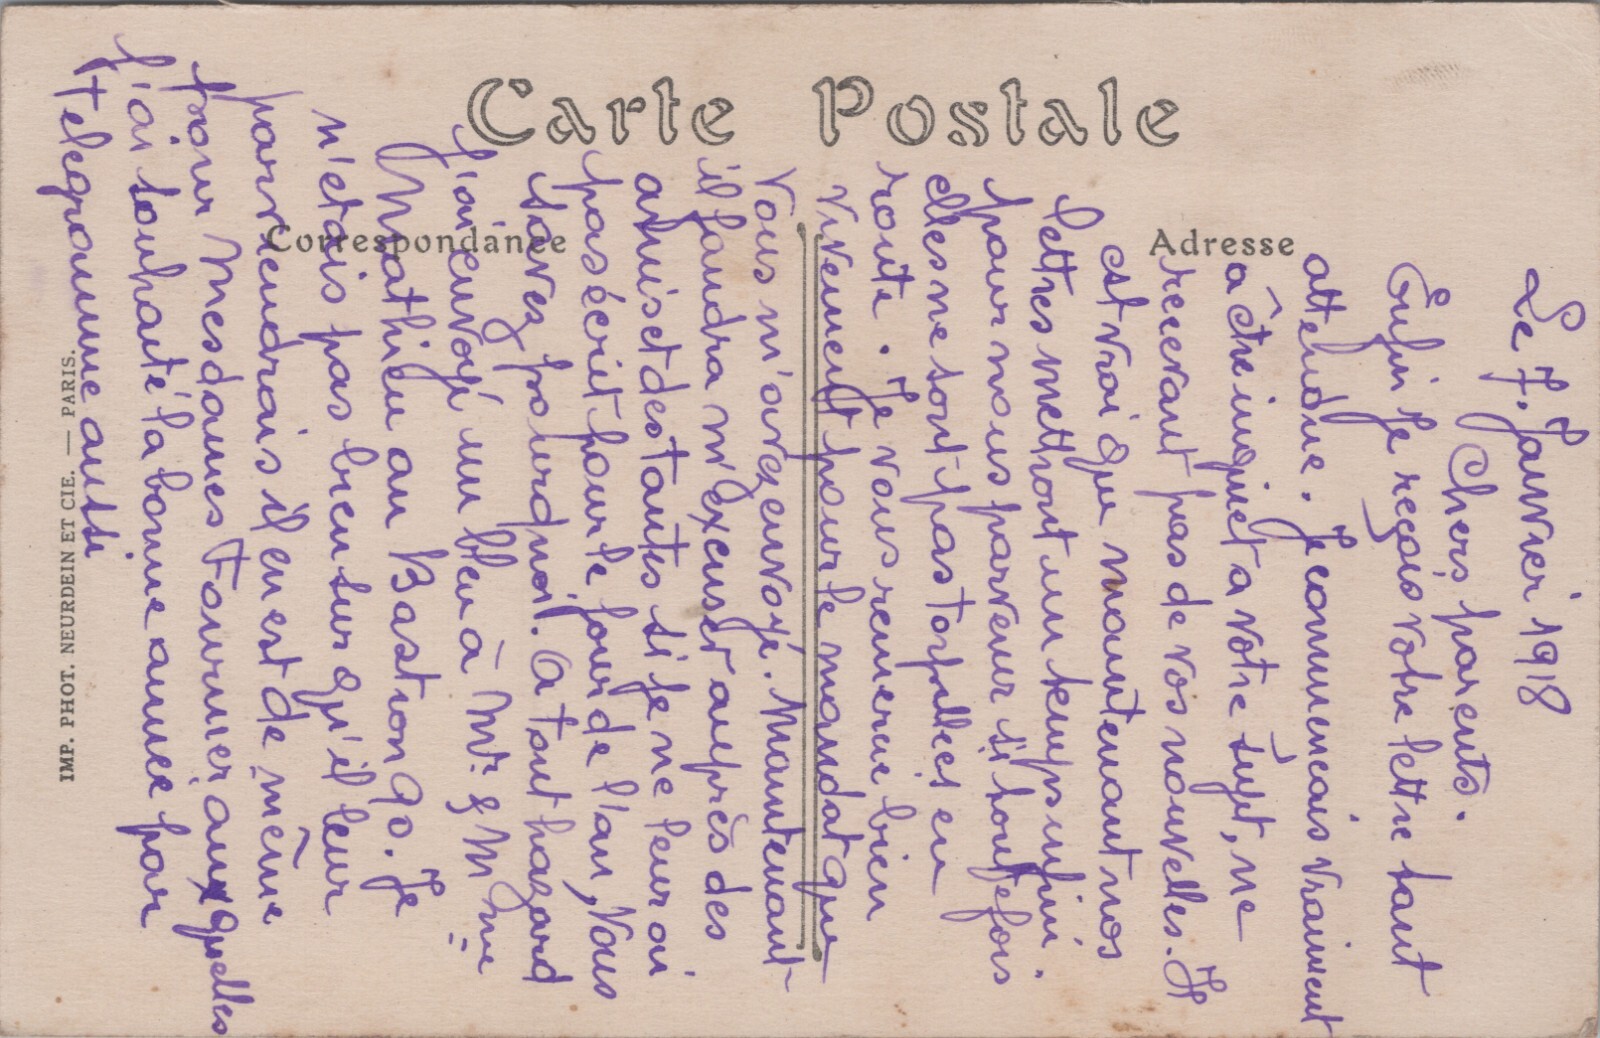 Carte Postale
Correspondance
Adresse
IMP. PHOT. NEURDEIN ET CIE. — PARIS.
Le 7. Janvier 1918
Chers parents.
Enfin je reçois votre lettre tant
attendue. Je commençais vraiment
a être inquiet a votre sujet, ne
recevant pas de vos nouvelles. Il
est vrai que maintenant nos
lettres mettront un temps infini
pour nous parvenir si toutefois
elles ne sont pas torpillées en
route. Je vous remercie bien
vivement pour le mandat que
vous m'avez envoyé. Maintenant
il faudra m'excuser auprès des
amis et des tantes si je ne leur ai
pas écrit pour le jour de l'an, Vous
savez pourquoi. A tout hazard
j'ai envoyé un bleu à Mr. & Mme
Mathieu au Bastion 90. Je
n'étais pas bien sur qu'il leur
parviendrais il en est de même
pour Mesdames Fournier auxquelles
j'ai souhaité la bonne année par
télégramme aussi